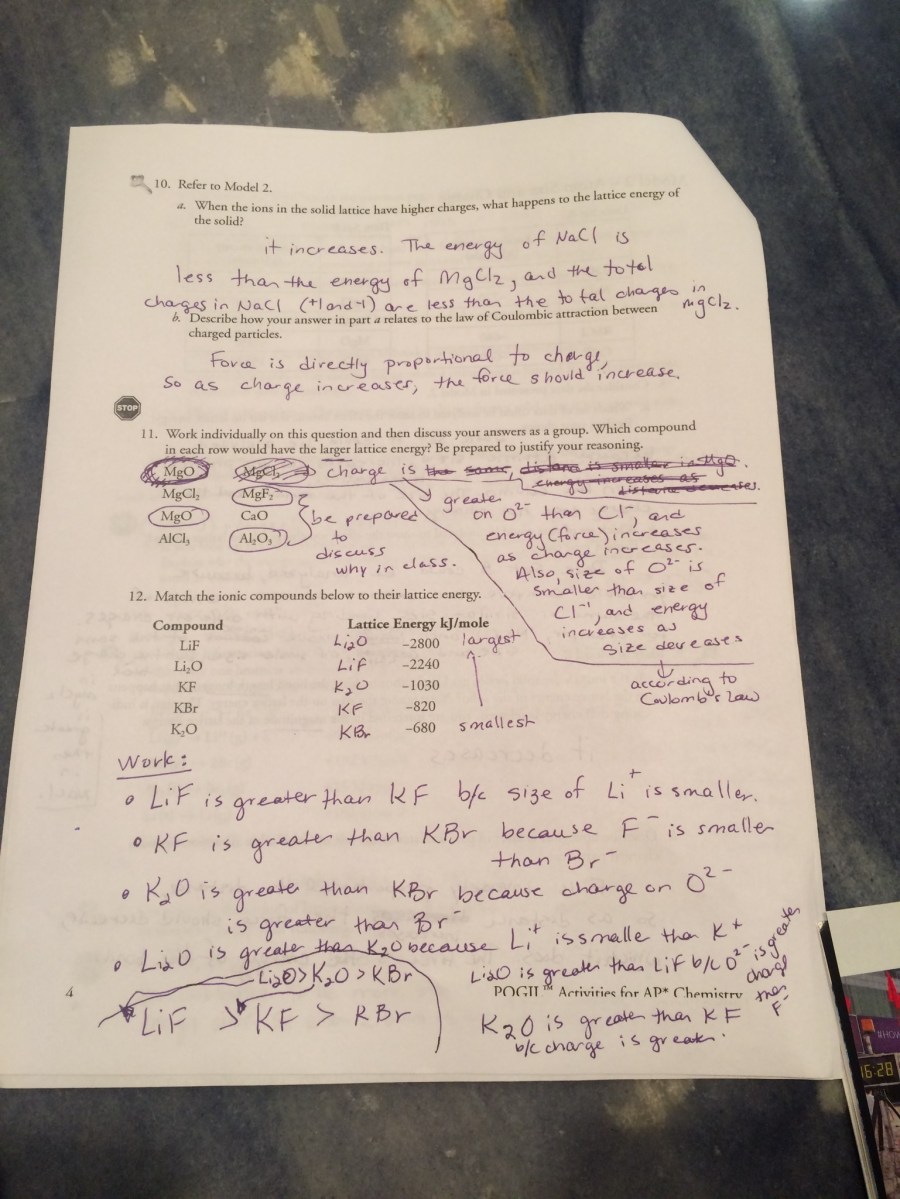 10. Refer to Model 2.
a. When the ions in the solid lattice have higher charges, what happens to the lattice energy of
the solid?
it increases. The energy of NaCl is
less than the energy of MgCl2, and the total
charges in NaCl (+1 and -1) are less than the total charges in MgCl2.
b. Describe how your answer in part a relates to the law of Coulombic attraction between
charged particles.
Force is directly proportional to charge,
So as charge increases, the force should increase.
STOP
11. Work individually on this question and then discuss your answers as a group. Which compound
in each row would have the larger lattice energy? Be prepared to justify your reasoning.
MgO MgCl2 → charge is the same, distance is smaller in MgO.
energy increases as
distance decreases.
MgCl₂ MgF₂
MgO CaO
AlCl₃ Al₂O₃
be prepared
to
discuss
why in class.
greater
on O2- than Cl-, and
energy (force) increases
as charge increases.
Also, size of O2- is
smaller than size of
Cl-1, and energy
increases as
size decreases
according to
Coulomb's Law
12. Match the ionic compounds below to their lattice energy.
Compound Lattice Energy kJ/mole
LiF Li2O –2800 largest
Li₂O LiF –2240
KF K2O –1030
KBr KF –820
K₂O KBr –680 smallest
Work:
• LiF is greater than KF b/c size of Li+ is smaller.
• KF is greater than KBr because F- is smaller
than Br-
• K2O is greater than KBr because charge on O2-
is greater than Br-
• Li2O is greater than K2O because Li+ is smalle than K+
Li2O > K2O > KBr
LiF > KF > KBr
Li2O is greater than LiF b/c O2- is greater
charge
than
F-
4
POGIL™ Activities for AP* Chemistry
K2O is greater than KF
b/c charge is greater.
#HOW
16:28